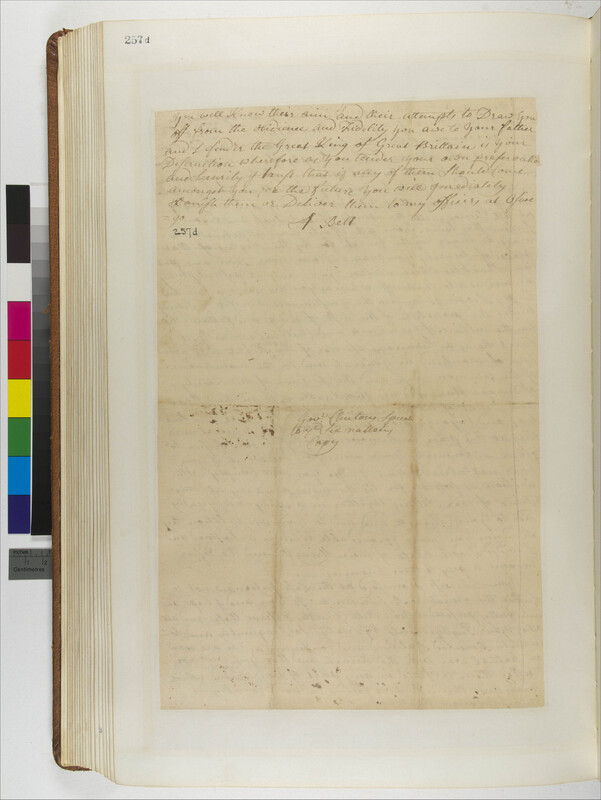 257d
you will know their aim and their attempts to Draw you
off from the obedience and Fidelity you owe to your father
and I finde is the Great King of Great Brittain is your
Distruction wherefore as you tender your own preservation
and Security I that if any of them Should come
amongst you for the future you will
them or Deliver them to my officers at Oswe
go
A Belt
257d
Govr Clintons Speech
to Six nations
Copy